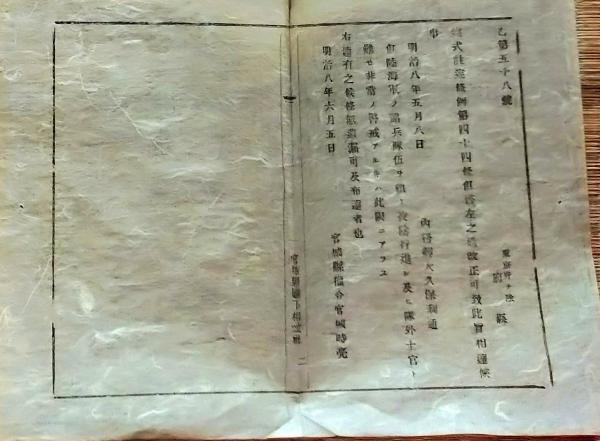 乙第五十八號
東京府ヲ除
府縣
違式詿違條例第四十四條但書左之通改正可致此旨相達候
事
明治八年五月八日
內務卿大久保利通
但陸海軍ノ諸兵隊伍ヲ組ミ夜陰行進シ及ヒ隊外士官ト
雖モ非常ノ警戒アルトキハ此限ニアラス
右達有之候條無遺漏可及布達者也
明治八年六月五日
宮城縣權令宮城時亮
二